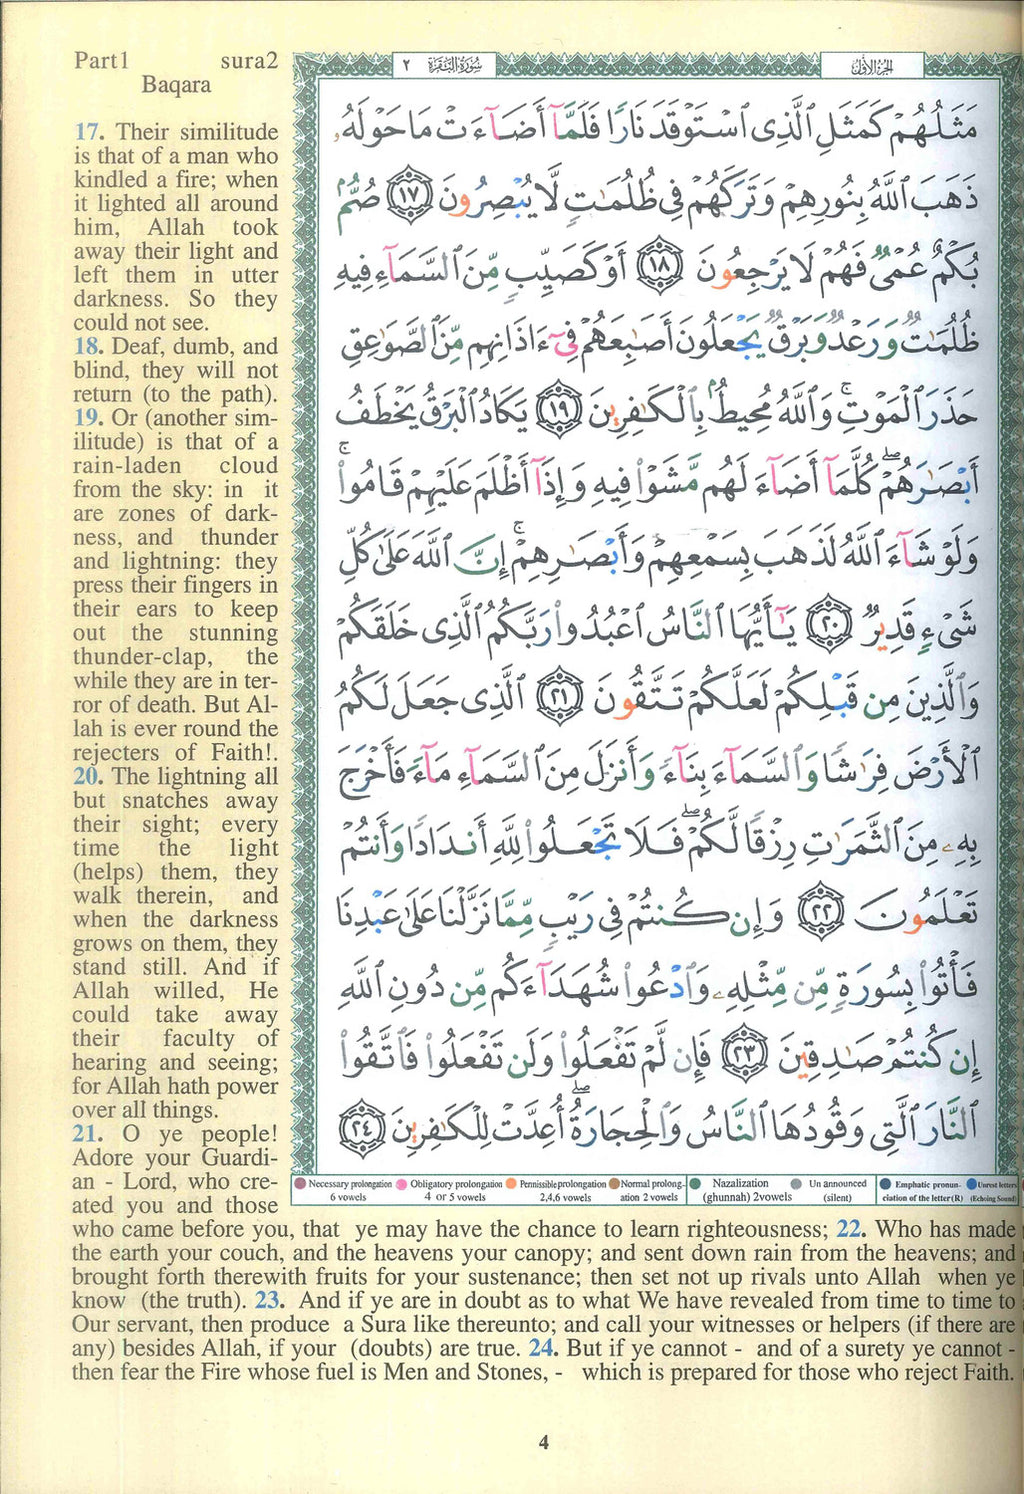 Part1 sura2
Baqara
17. Their similitude
is that of a man who
kindled a fire; when
it lighted all around
him, Allah took
away their light and
left them in utter
darkness. So they
could not see.
18. Deaf, dumb, and
blind, they will not
return (to the path).
19. Or (another sim-
ilitude) is that of a
rain-laden cloud
from the sky: in it
are zones of dark-
ness, and thunder
and lightning: they
press their fingers in
their ears to keep
out the stunning
thunder-clap, the
while they are in ter-
ror of death. But Al-
lah is ever round the
rejecters of Faith!.
20. The lightning all
but snatches away
their sight; every
time the light
(helps) them, they
walk therein, and
when the darkness
grows on them, they
stand still. And if
Allah willed, He
could take away
their faculty of
hearing and seeing;
for Allah hath power
over all things.
21. O ye people!
Adore your Guardi-
an - Lord, who cre-
ated you and those
الجزء الأول سورة البقرة ٢
مَثَلُهُمْ كَمَثَلِ ٱلَّذِى ٱسْتَوْقَدَ نَارًا فَلَمَّآ أَضَآءَتْ مَا حَوْلَهُۥ
ذَهَبَ ٱللَّهُ بِنُورِهِمْ وَتَرَكَهُمْ فِى ظُلُمَٰتٍ لَّا يُبْصِرُونَ ١٧ صُمٌّۢ
بُكْمٌ عُمْىٌ فَهُمْ لَا يَرْجِعُونَ ١٨ أَوْ كَصَيِّبٍ مِّنَ ٱلسَّمَآءِ فِيهِ
ظُلُمَٰتٌ وَرَعْدٌ وَبَرْقٌ يَجْعَلُونَ أَصَٰبِعَهُمْ فِىٓ ءَاذَانِهِم مِّنَ ٱلصَّوَٰعِقِ
حَذَرَ ٱلْمَوْتِ ۚ وَٱللَّهُ مُحِيطٌۢ بِٱلْكَٰفِرِينَ ١٩ يَكَادُ ٱلْبَرْقُ يَخْطَفُ
أَبْصَٰرَهُمْ ۖ كُلَّمَآ أَضَآءَ لَهُم مَّشَوْا۟ فِيهِ وَإِذَآ أَظْلَمَ عَلَيْهِمْ قَامُوا۟ ۚ
وَلَوْ شَآءَ ٱللَّهُ لَذَهَبَ بِسَمْعِهِمْ وَأَبْصَٰرِهِمْ ۚ إِنَّ ٱللَّهَ عَلَىٰ كُلِّ
شَىْءٍ قَدِيرٌ ٢٠ يَٰٓأَيُّهَا ٱلنَّاسُ ٱعْبُدُوا۟ رَبَّكُمُ ٱلَّذِى خَلَقَكُمْ
وَٱلَّذِينَ مِن قَبْلِكُمْ لَعَلَّكُمْ تَتَّقُونَ ٢١ ٱلَّذِى جَعَلَ لَكُمُ
ٱلْأَرْضَ فِرَٰشًا وَٱلسَّمَآءَ بِنَآءً وَأَنزَلَ مِنَ ٱلسَّمَآءِ مَآءً فَأَخْرَجَ
بِهِۦ مِنَ ٱلثَّمَرَٰتِ رِزْقًا لَّكُمْ ۖ فَلَا تَجْعَلُوا۟ لِلَّهِ أَندَادًا وَأَنتُمْ
تَعْلَمُونَ ٢٢ وَإِن كُنتُمْ فِى رَيْبٍ مِّمَّا نَزَّلْنَا عَلَىٰ عَبْدِنَا
فَأْتُوا۟ بِسُورَةٍ مِّن مِّثْلِهِۦ وَٱدْعُوا۟ شُهَدَآءَكُم مِّن دُونِ ٱللَّهِ
إِن كُنتُمْ صَٰدِقِينَ ٢٣ فَإِن لَّمْ تَفْعَلُوا۟ وَلَن تَفْعَلُوا۟ فَٱتَّقُوا۟
ٱلنَّارَ ٱلَّتِى وَقُودُهَا ٱلنَّاسُ وَٱلْحِجَارَةُ ۖ أُعِدَّتْ لِلْكَٰفِرِينَ ٢٤
Necessary prolongation Obligatory prolongation Permissible prolongation Normal prolong- Nazalization Un announced Emphatic pronun- Unrest letters
6 vowels 4 or 5 vowels 2,4,6 vowels ation 2 vowels (ghunnah) 2vowels (silent) ciation of the letter (R) (Echoing Sound)
who came before you, that ye may have the chance to learn righteousness; 22. Who has made
the earth your couch, and the heavens your canopy; and sent down rain from the heavens; and
brought forth therewith fruits for your sustenance; then set not up rivals unto Allah when ye
know (the truth). 23. And if ye are in doubt as to what We have revealed from time to time to
Our servant, then produce a Sura like thereunto; and call your witnesses or helpers (if there are
any) besides Allah, if your (doubts) are true. 24. But if ye cannot - and of a surety ye cannot -
then fear the Fire whose fuel is Men and Stones, - which is prepared for those who reject Faith.
4